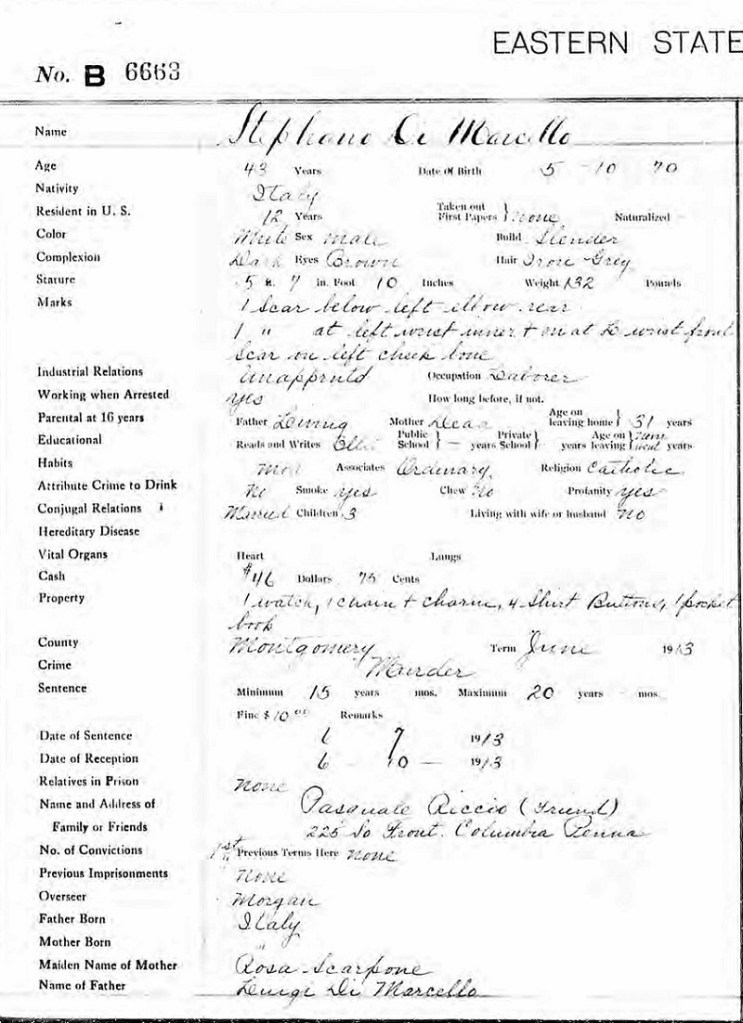 EASTERN STATE
No. B 6663
Name Stephano Di Marcello
Age 43 Years Date Of Birth 5 - 10 70
Nativity Italy
Resident in U. S. 12 Years Taken out First Papers } none Naturalized
Color White Sex Male Build Slender
Complexion Dark Eyes Brown Hair Iron Grey
Stature 5 ft. 7 in. Foot 10 Inches Weight 132 Pounds
Marks 1 Scar below left elbow rear
1 " at left wrist inner + on at L wrist front
Scar on left cheek bone
Industrial Relations Unapprntd Occupation Laborer
Working when Arrested yes How long before, if not.
Parental at 16 years Father Living Mother Dead Age on leaving home } 31 years
Educational Reads and Writes Public School } — years Private School } years Age on leaving } never went years
Habits Mod Associates Ordinary Religion Catholic
Attribute Crime to Drink No Smoke yes Chew No Profanity yes
Conjugal Relations Married Children 3 Living with wife or husband No
Hereditary Disease
Vital Organs Heart Lungs
Cash $46 Dollars 75 Cents
Property 1 watch, 1 chain + charm, 4 Shirt Buttons, 1 pocket
book
County Montgomery Term June 1913
Crime Murder
Sentence Minimum 15 years mos. Maximum 20 years - mos.
Fine $ 10 00 Remarks
Date of Sentence 6 7 1913
Date of Reception 6 - 10 - 1913
Relatives in Prison None
Name and Address of Pasquale Riccio (Friend)
Family or Friends 225 So Front. Columbia Penna
No. of Convictions 1st Previous Terms Here None
Previous Imprisonments None
Overseer Morgan
Father Born Italy
Mother Born "
Maiden Name of Mother Rosa Scarpone
Name of Father Luigi Di Marcello